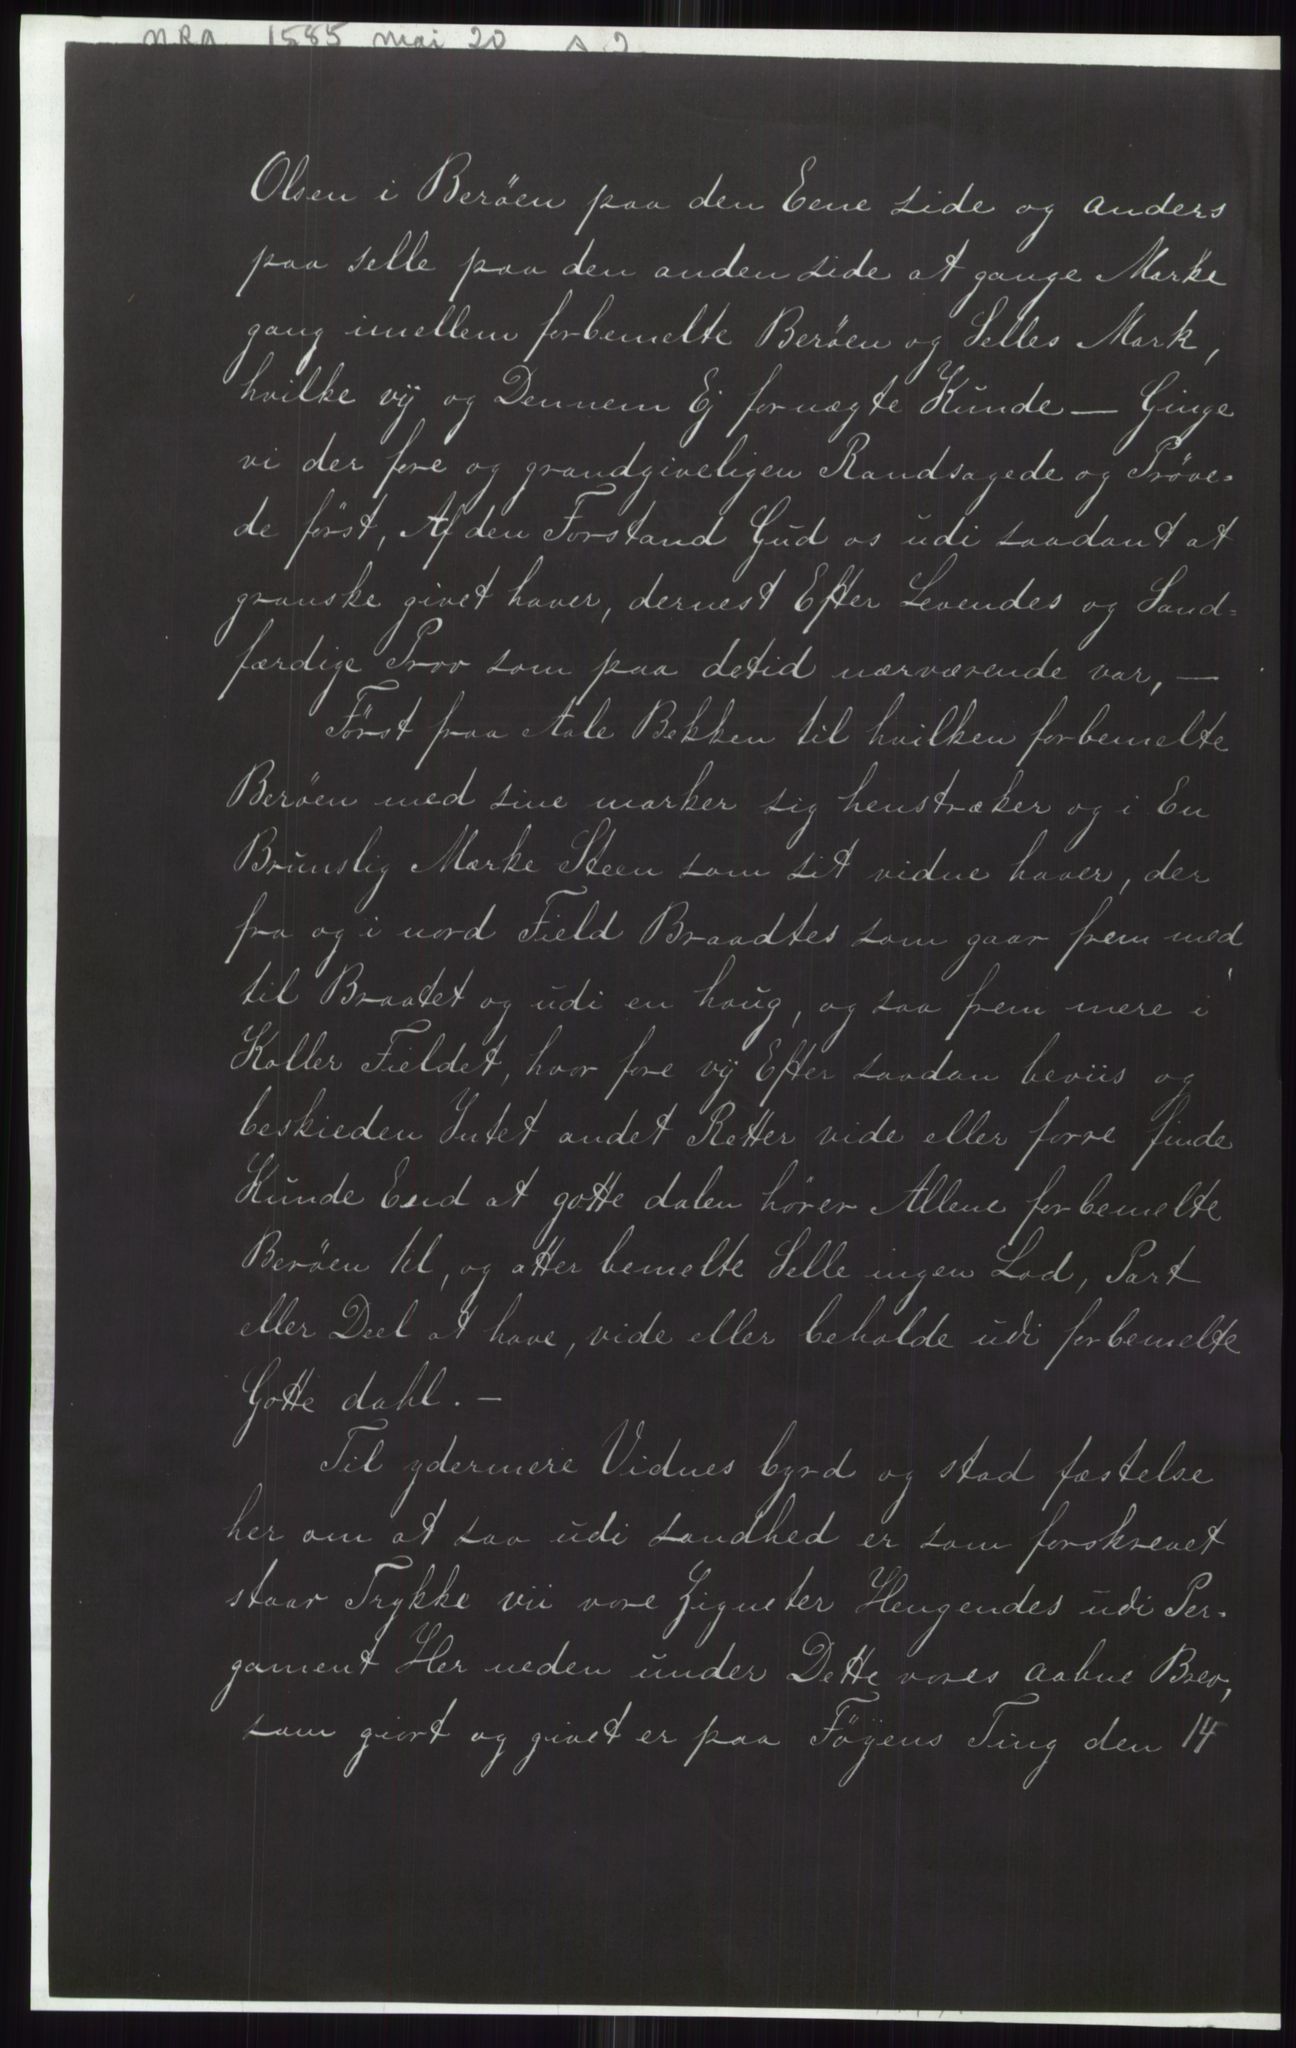 NRA 1585 mai 20
Olsen i Beröen paa den Eene side og anders
paa selle paa den anden side at gange Marke
gang imellem forbemelte Beröen og Selles Mark,
hvilke vÿ og Dennem Ej fornægte Kunde — Ginge
vi der fore og grandgiveligen Randsagede og Pröve=
de först, Af den Forstand Gud os udi saadant at
granske givet haver, dernest Efter Levendes og Sand=
færdige Prov som paa detid nærværende var, —
Först fraa Aale Bekken til hvilken forbemelte
Beröen med sine marker sig henstræker og i En
Brunslig Mærke Steen som sit vidne haver, der
fra og i nord Field Braadtes som gaar frem med
til Braatet og udi en houg, og saa frem mere i
Koller Fieldet, hvor fore vÿ Efter saadan beviis og
beskieden Intet andet Retter vide eller forre finde
Kunde End at gotte dalen hörer Allene forbemelte
Beröen til, og atter bemelte Selle ingen Lod, Part
eller Deel at have, vide eller beholde udi forbemelte
Gotte dahl. —
Til ydermere Vidnes byrd og stad fæstelse
her om at saa udi sandhed er som forskrevet
staar Trykke vii vore Zigneter Hengendes udi Per=
gament Her neden under Dette vores aabne Brev,
som giort og givet er paa Föÿens Ting den 14